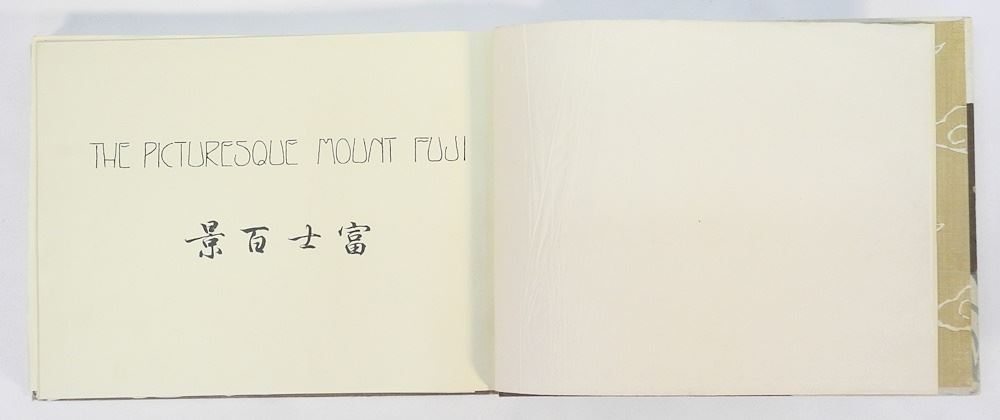 THE PICTURESQUE MOUNT FUJI
富士百景